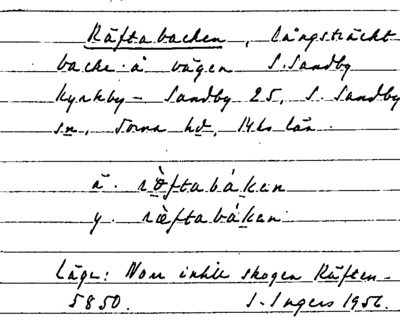 Räftabacken, långsträckt
backe å vägen S. Sandby
kyrkby – Sandby 25, S. Sandby
sn, Torna hd, M-hs län.
ä. røftabáken
y. ræftabáken
Läge: Norr intill skogen Räften –
5850. I. Ingers 1956.